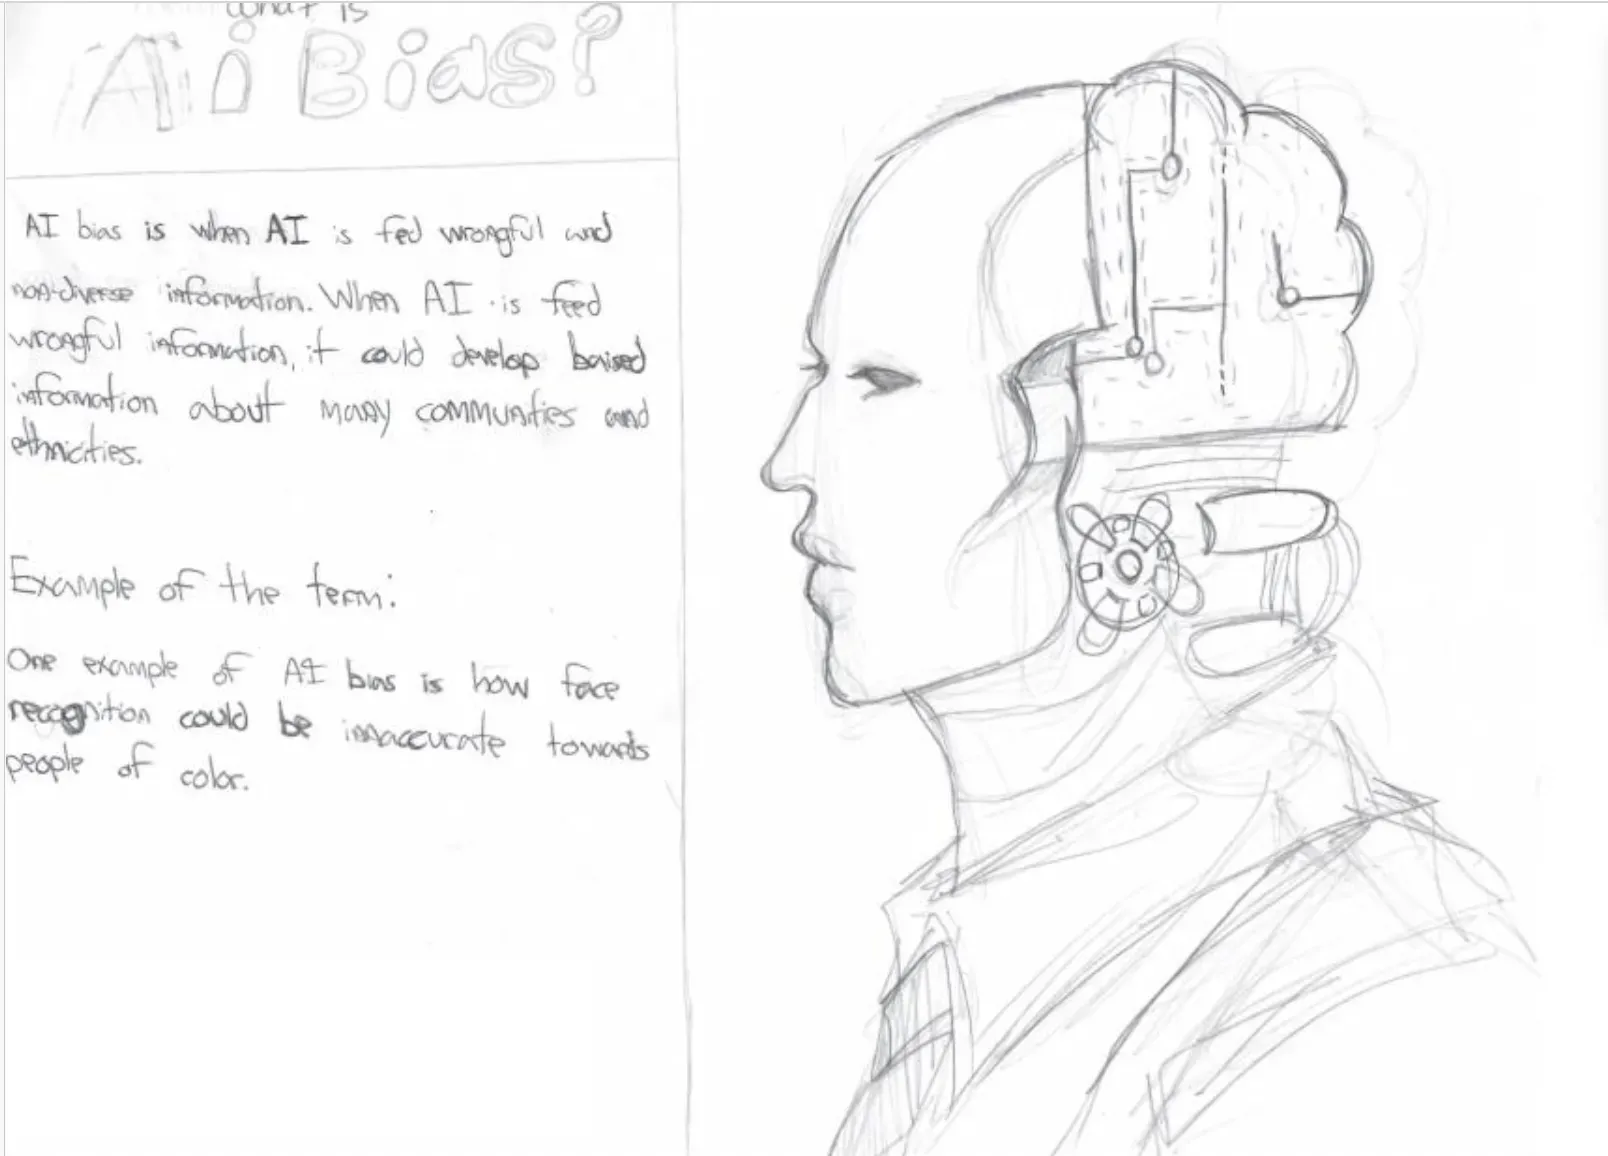 What is
Ai Bias?
AI bias is when AI is fed wrongful and
non-diverse information. When AI is feed
wrongful information, it could develop baised
information about many communities and
ethnicities.
Example of the term:
One example of AI bias is how face
recognition could be innaccurate towards
people of color.